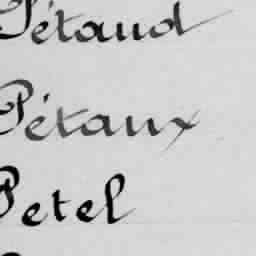 Pétaud
Pétaux
Petel